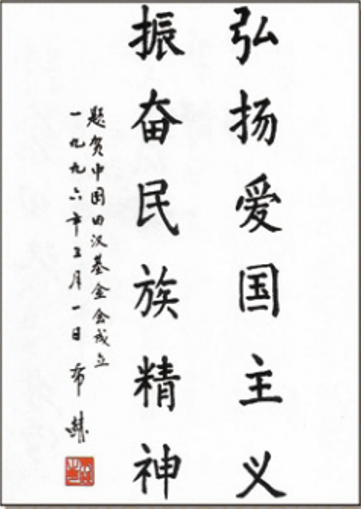 弘扬爱国主义
振奋民族精神
题贺中国田汉基金会成立
一九九六年五月一日 布赫